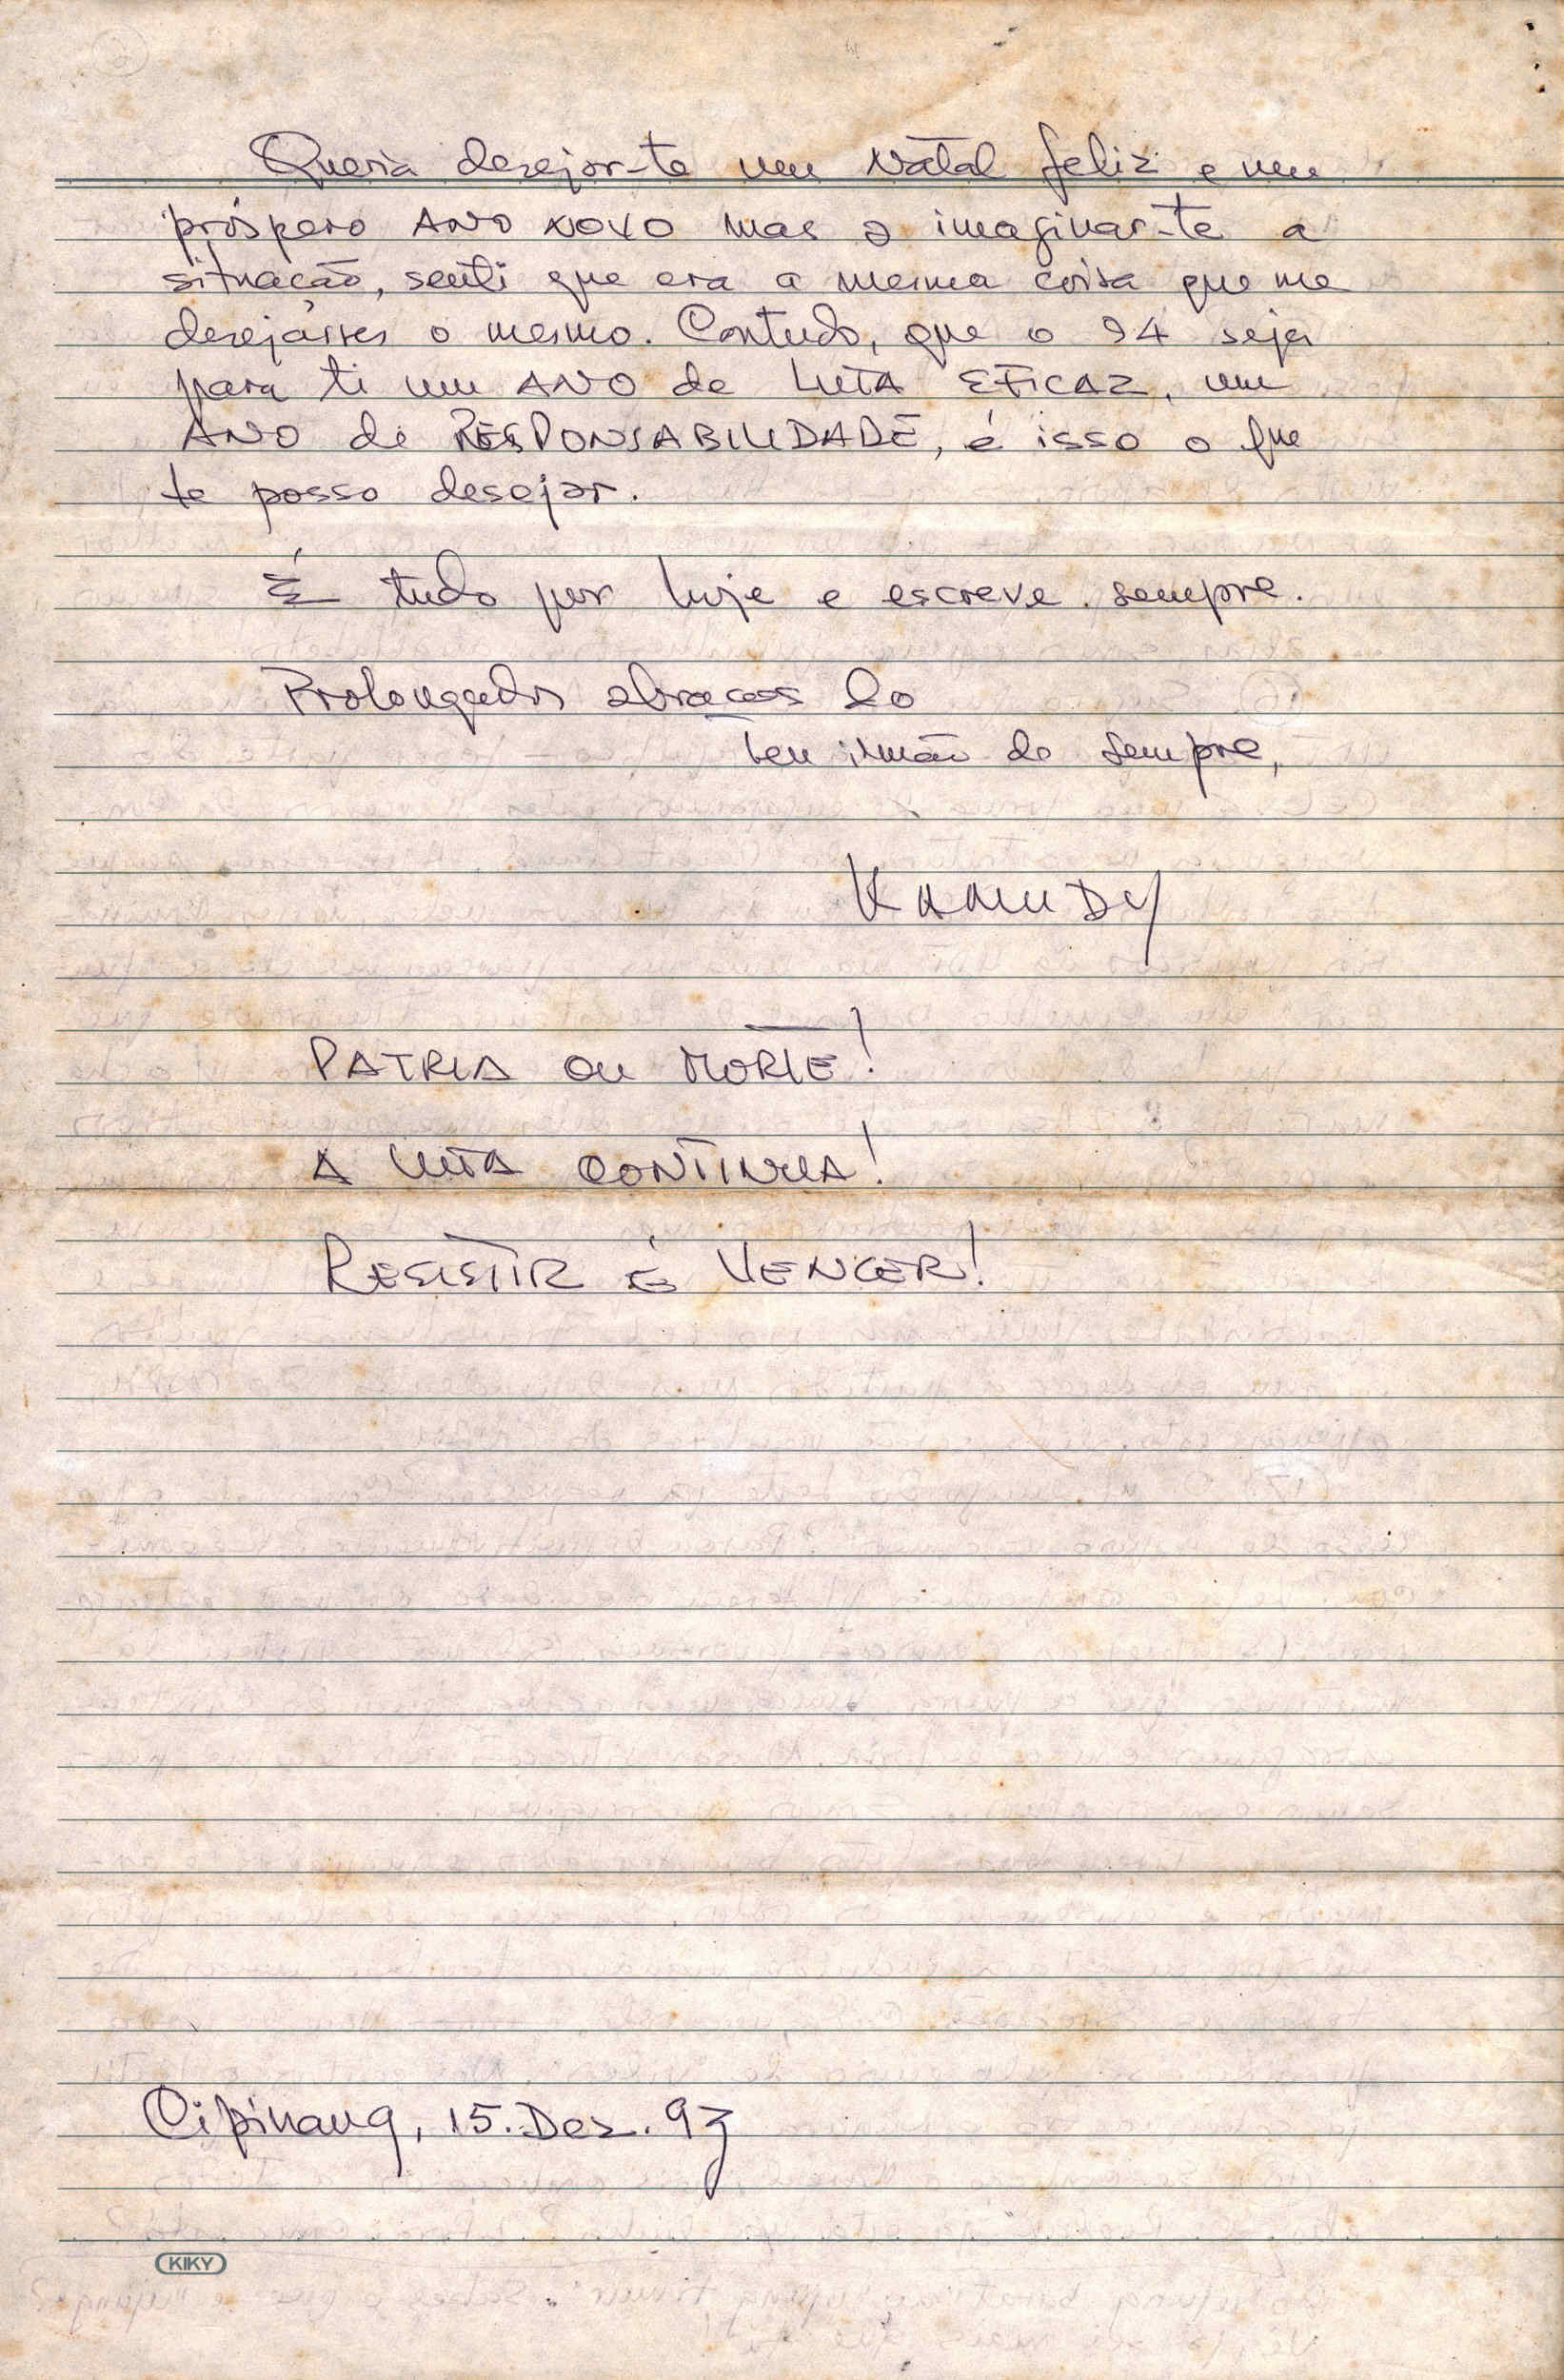 Queria desejar-te um Natal feliz e um
próspero ANO NOVO mas a imaginar-te a
situação, senti que era a mesma coisa que me
desejásses o mesmo. Contudo, que o 94 seja
para ti um ANO de LUTA EFICAZ, um
ANO de RESPONSABILIDADE, é isso o que
te posso desejar.
É tudo por hoje e escreve sempre.
Prolongados abraços do
teu irmão de sempre,
KAMUDY
PATRIA OU MORTE!
A LUTA CONTINUA!
RESISTIR É VENCER!
Cipinang, 15.Dez.93
KIKY